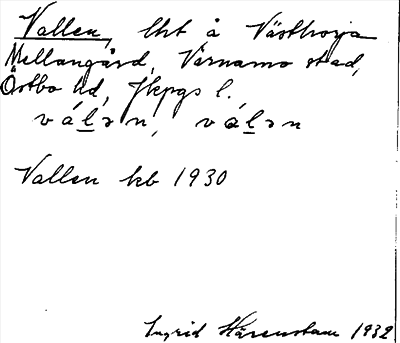 Vallen, lht å Västhorja
Mellangård, Värnamo stad,
Östbo hd, Jkpgs l.
váḻən, váḻən
Vallen kb 1930
Ingrid Härenstam 1932